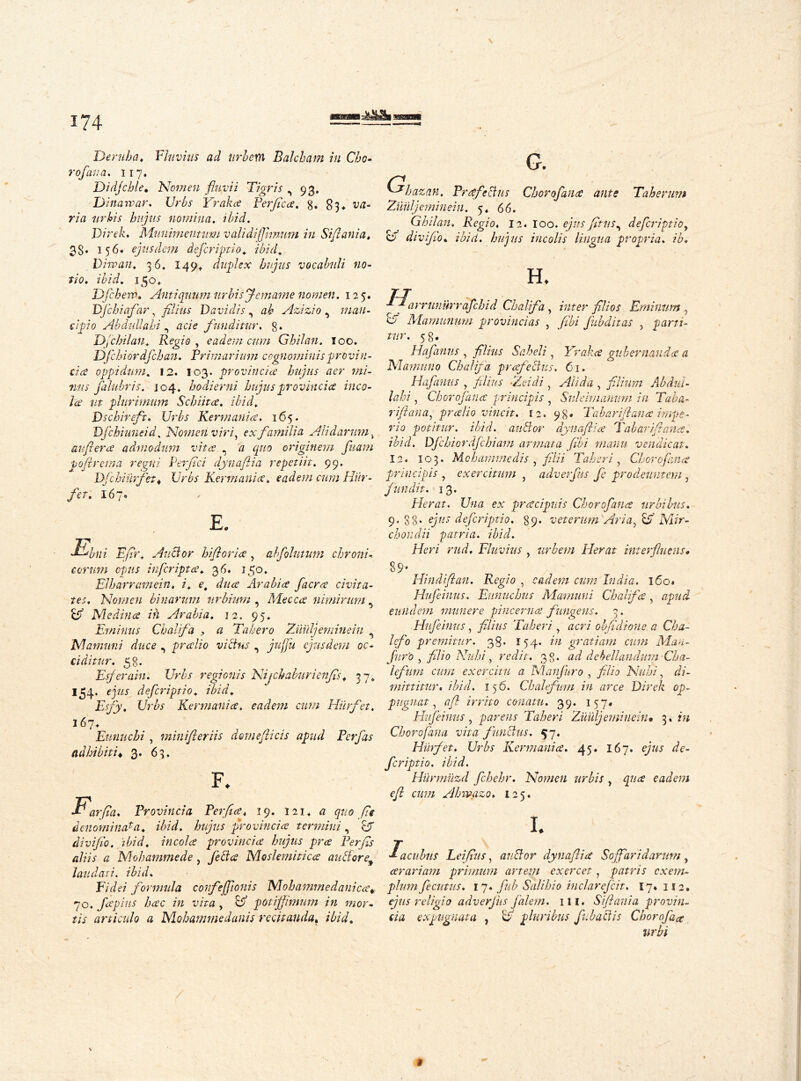 174
Deruha. Fluvius ad urbem Balcham in Cho-
rofana. 117.
Didjchle. Nomen fluvii Tigris, 93.
Dinawar. Urbs Yrakæ Perficæ. 8. 83. va-
ria urbis hujus nomina. ibid.
Direk. Munimentum validiſſimum in Siſtania.
38. 156. ejusdem deſcriptio. ibid.
Diwan. 36. 149. duplex hujus vocabuli no-
tio. ibid. 150.
Dſchem. Antiquum urbis Jemame nomen. 125.
Dſchiafar, filius Davidis, ab Azizio, man-
cipio Abdullahi, acie funditur. 8.
Dſchilan. Regio, eadem cum Ghilan. 100.
Dſchiordſchan. Primarium cognominis provin-
ciæ oppidum. 12. 103. provinciæ hujus aer mi-
nus ſalubris. 104. hodierni hujus provinciæ inco-
læ ut plurimum Schiitæ. ibid.
Dschireft. Urbs Kermaniæ. 165.
Dſchiuneid. Nomen viri, ex familia Alidarum,
auſteræ admodum vitæ, a quo originem ſuam
poſtrema regni Perſici dynaſtia repetiit. 99.
Dſchiürfet. Urbs Kermaniæ. eadem cum Hür-
fet. 167.
E.
Ebni Eſir. Auctor hiſtoriæ, abſolutum chroni-
corum opus inſcriptæ. 36. 150.
Elharramein. i. e. duæ Arabiæ ſacræ civita-
tes. Nomen binarum urbium, Meccæ nimirum,
& Medinæ in Arabia. 12. 95.
Eminus Chalifa, a Tahero Züüljeminein,
Mamuni duce, prælio victus, juſſu ejusdem oc-
ciditur. 58.
Esferain. Urbs regionis Niſchaburienſis. 37.
154. ejus deſcriptio. ibid.
Esfy. Urbs Kermaniæ. eadem cum Hürfet.
167.
Eunuchi, miniſteriis domeſticis apud Perſas
adhibiti. 3. 63.
F.
Farſia. Provincia Perſiæ. 19. 121. a quo ſit
denominata. ibid. hujus provinciæ termini, &
diviſio. ibid. incolæ provinciæ hujus præ Perſis
aliis a Mohammede, ſectæ Moslemiticæ auctore,
laudati. ibid.
Fidei formula confeſſionis Mohammedanicæ.
70. ſæpius hæc in vita, & potiſſimum in mor-
tis articulo a Mohammedanis recitanda. ibid.
G.
Ghazan. Præfectus Choroſanæ ante Taherum
Züüljeminein. 5. 66.
Ghilan. Regio. 12. 100. ejus ſitus, deſcriptio,
& diviſio. ibid. hujus incolis lingua propria. ib.
H.
Harrunürraſchid Chalifa, inter filios Eminum,
& Mamunum provincias, ſibi ſubditas, parti-
tur. 58.
Haſanus, filius Saheli, Yrakæ gubernandæ a
Mamuno Chalifa præfectus. 61.
Haſanus, filius Zeidi, Alida, filium Abdul-
lahi, Choroſanæ principis, Suleimanum in Taba-
riſtana, prælio vincit. 12. 98. Tabariſtanæ impe-
rio potitur. ibid. auctor dynaſtiæ Tabariſtanæ.
ibid. Dſchiordſchiam armata ſibi manu vendicat.
12. 103. Mohammedis, filii Taheri, Choroſanæ
principis, exercitum, adverſus ſe prodeuntem,
fundit. 13.
Herat. Una ex præcipuis Choroſanæ urbibus.
9. 88. ejus deſcriptio. 89. veterum Aria, & Mir-
chondii patria. ibid.
Heri rud. Fluvius, urbem Herat interfluens.
89.
Hindiſtan. Regio, eadem cum India. 160.
Huſeinus. Eunuchus Mamuni Chalifæ, apud
eundem munere pincernæ fungens. 3.
Huſeinus, filius Taheri, acri obſidione a Cha-
lefo premitur. 38. 154. in gratiam cum Man-
ſuro, filio Nuhi, redit. 38. ad debellandum Cha-
lefum cum exercitu a Manſuro, filio Nuhi, di-
mittitur. ibid. 156. Chalefum in arce Direk op-
pugnat, aſt irrito conatu. 39. 157.
Huſeinus, parens Taheri Züüljeminein. 3. in
Choroſana vita functus. 57.
Hürfet. Urbs Kermaniæ. 45. 167. ejus de-
ſcriptio. ibid.
Hürmüzd ſchehr. Nomen urbis, quæ eadem
eſt cum Ahwazo. 125.
I.
Jacubus Leiſius, auctor dynaſtiæ Soffaridarum,
ærariam primum artem exercet, patris exem-
plum ſecutus. 17. ſub Salihio inclareſcit. 17. 112.
ejus religio adverſus ſalem. 111. Siſtania provin-
cia expugnata, & pluribus ſubactis Choroſaæ
urbi